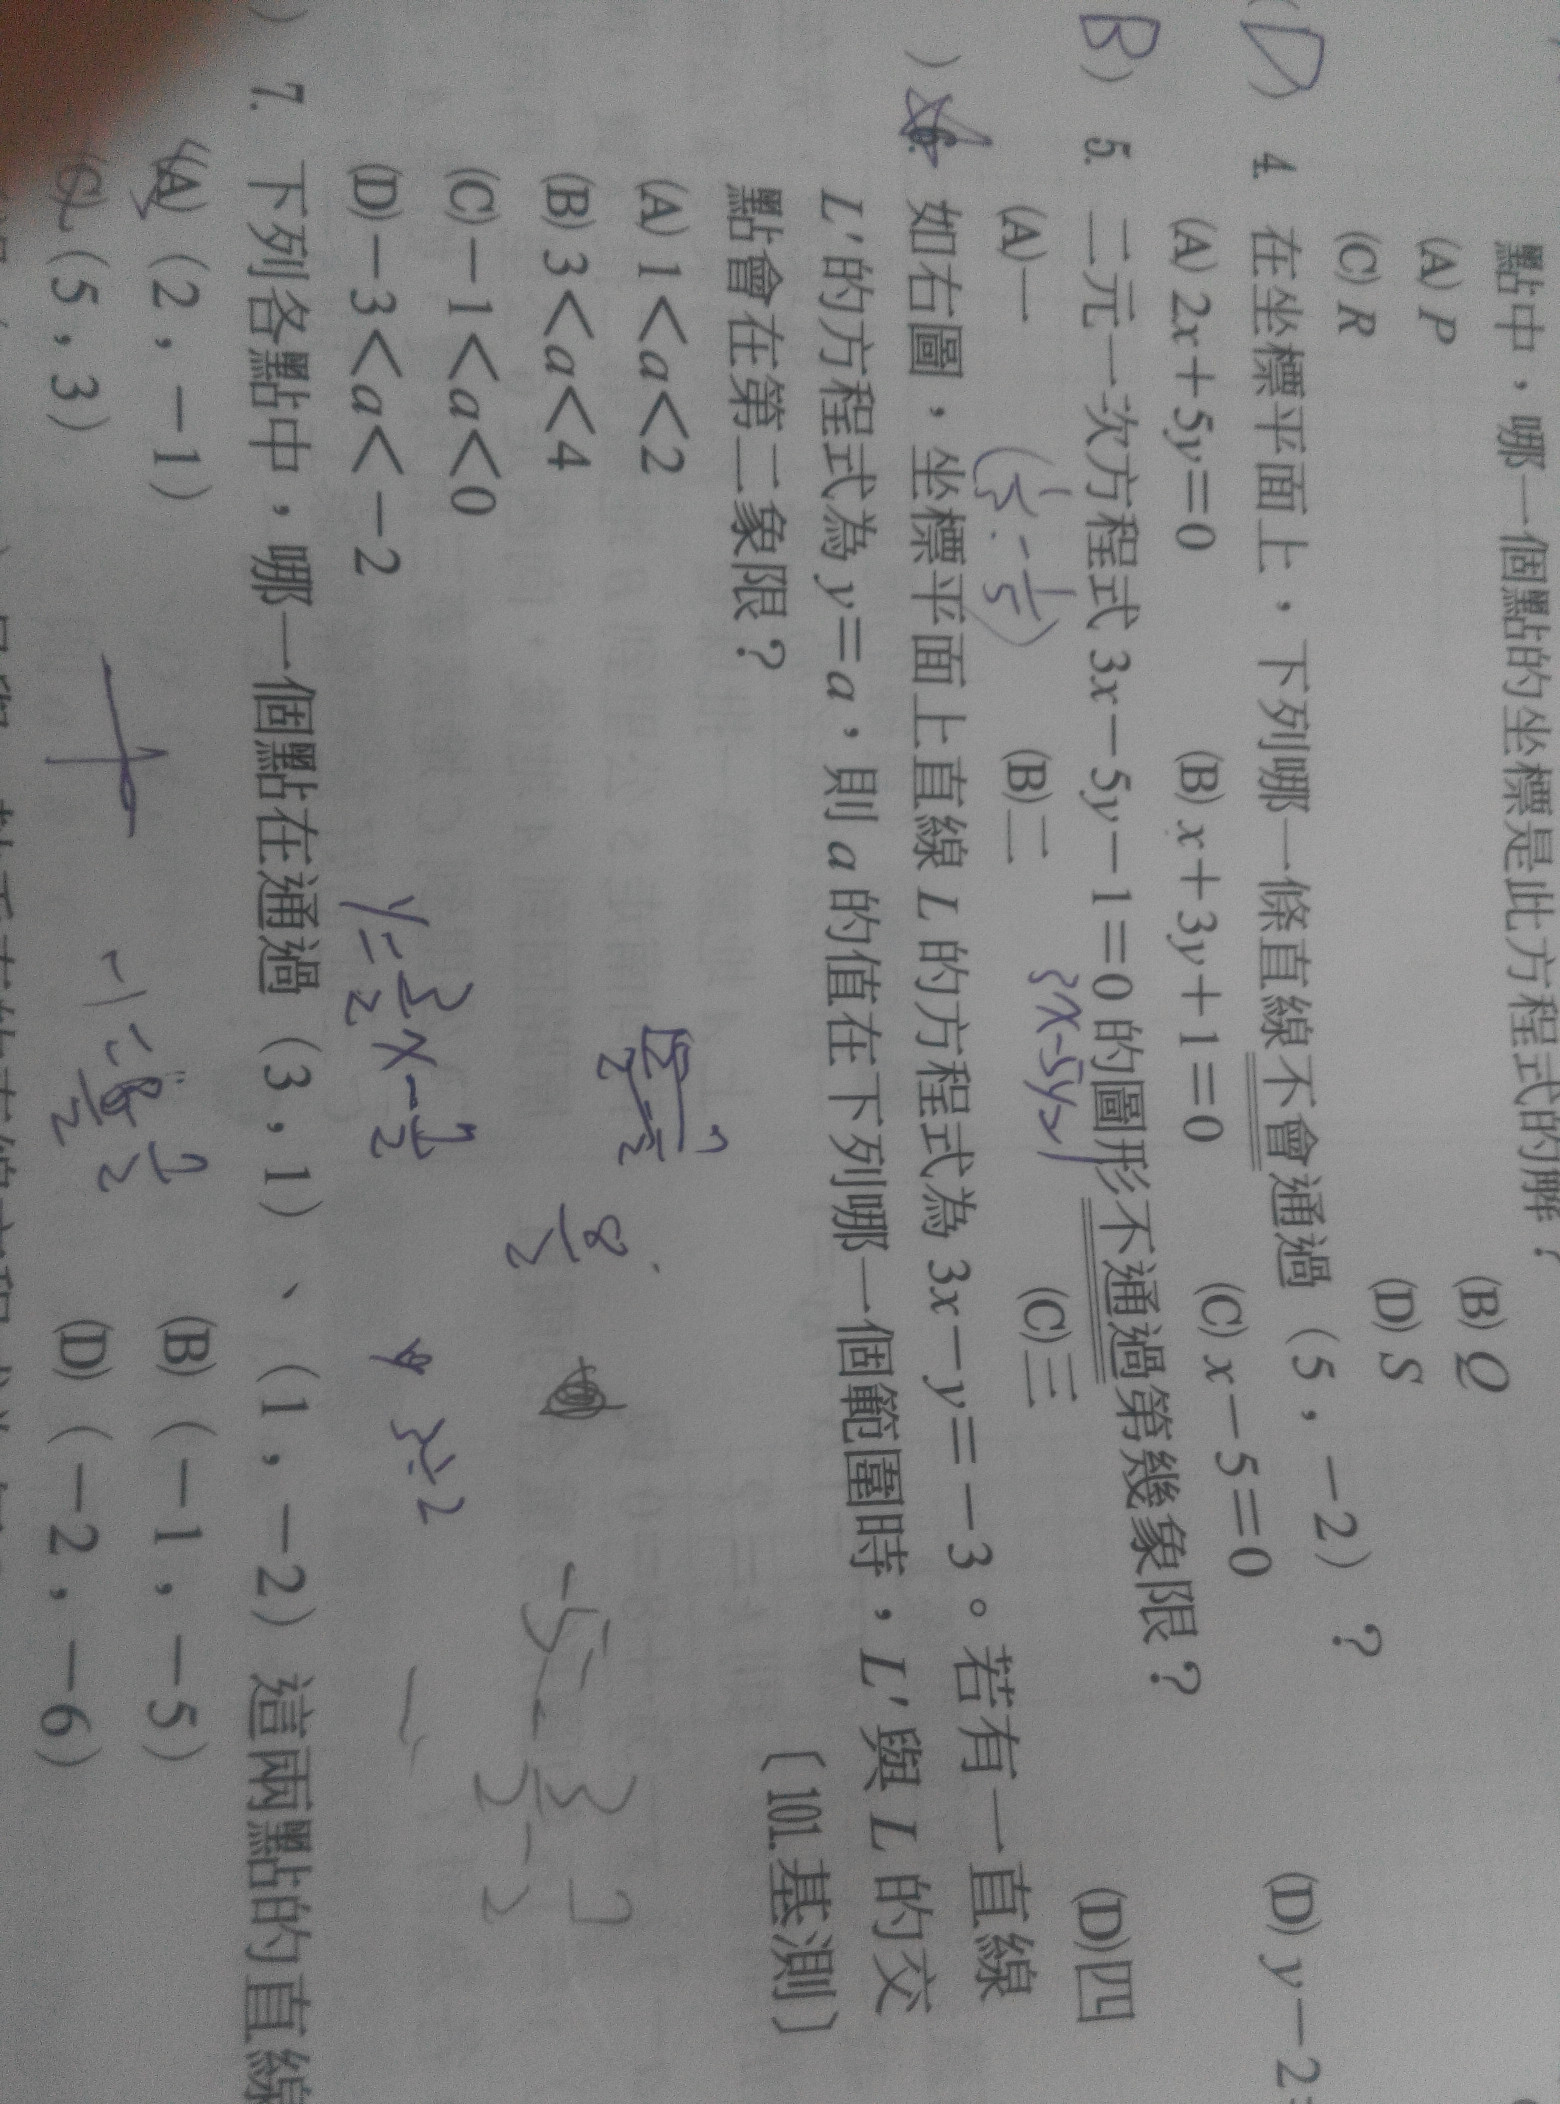 點中，哪一個點的坐標是此方程式的解？
(A) P (B) Q
(C) R (D) S
(D) 4. 在坐標平面上，下列哪一條直線不會通過（5，－2）？
(A) 2x＋5y＝0 (B) x＋3y＋1＝0 (C) x－5＝0 (D) y－2＝
(B) 5. 二元一次方程式 3x－5y－1＝0 的圖形不通過第幾象限？
3x-5y=1
(A)一 (B)二 (C)三 (D)四
) 6. 如右圖，坐標平面上直線 L 的方程式為 3x－y＝－3。若有一直線
L'的方程式為 y＝a，則 a 的值在下列哪一個範圍時，L'與 L 的交
點會在第二象限？ 〔101.基測〕
(A) 1＜a＜2
(B) 3＜a＜4
(C)－1＜a＜0
(D)－3＜a＜－2
y=3/2x-7/2
) 7. 下列各點中，哪一個點在通過（3，1）、（1，－2）這兩點的直線
(A)（2，－1） (B)（－1，－5）
(C)（5，3） (D)（－2，－6）